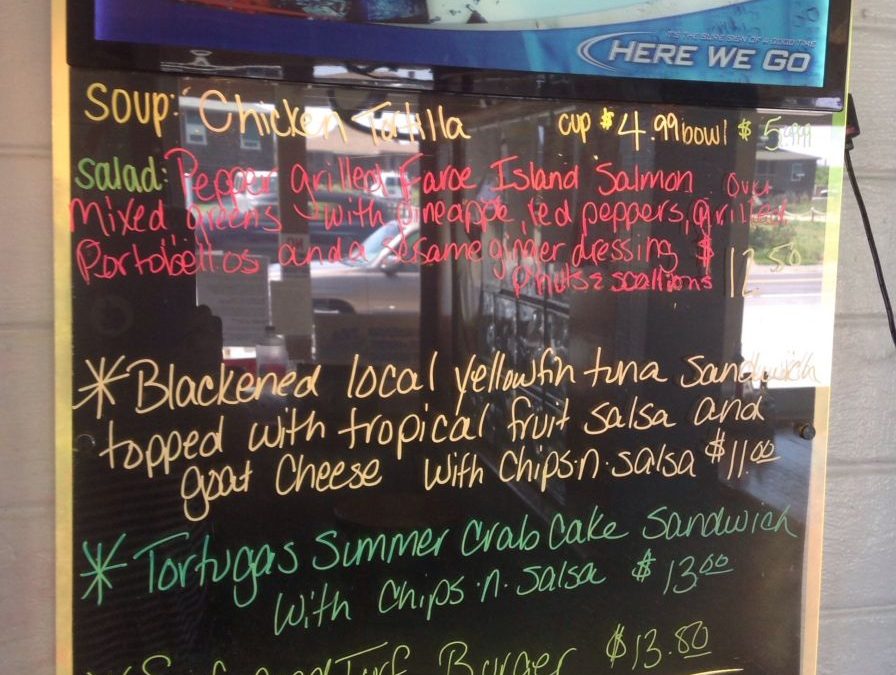 IT'S THE SURE SIGN OF A GOOD TIME
HERE WE GO
Soup: Chicken Tortilla cup $4.99 bowl $5.999
Salad: Pepper grilled Faroe Island Salmon over
Mixed greens with pineapple, red peppers, grilled
Portobellos and a sesame ginger dressing $
12.50
Pnuts & scallions
*Blackened local yellowfin tuna sandwich
topped with tropical fruit salsa and
goat cheese with chips·n·salsa $11.00
*Tortugas Summer Crab Cake Sandwich
with chips·n·salsa $13.00
Turf Burger $13.80